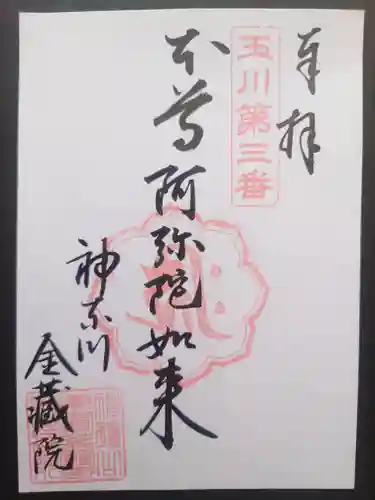 奉拝
玉川第三番
本尊阿弥陀如来
神奈川
金藏院